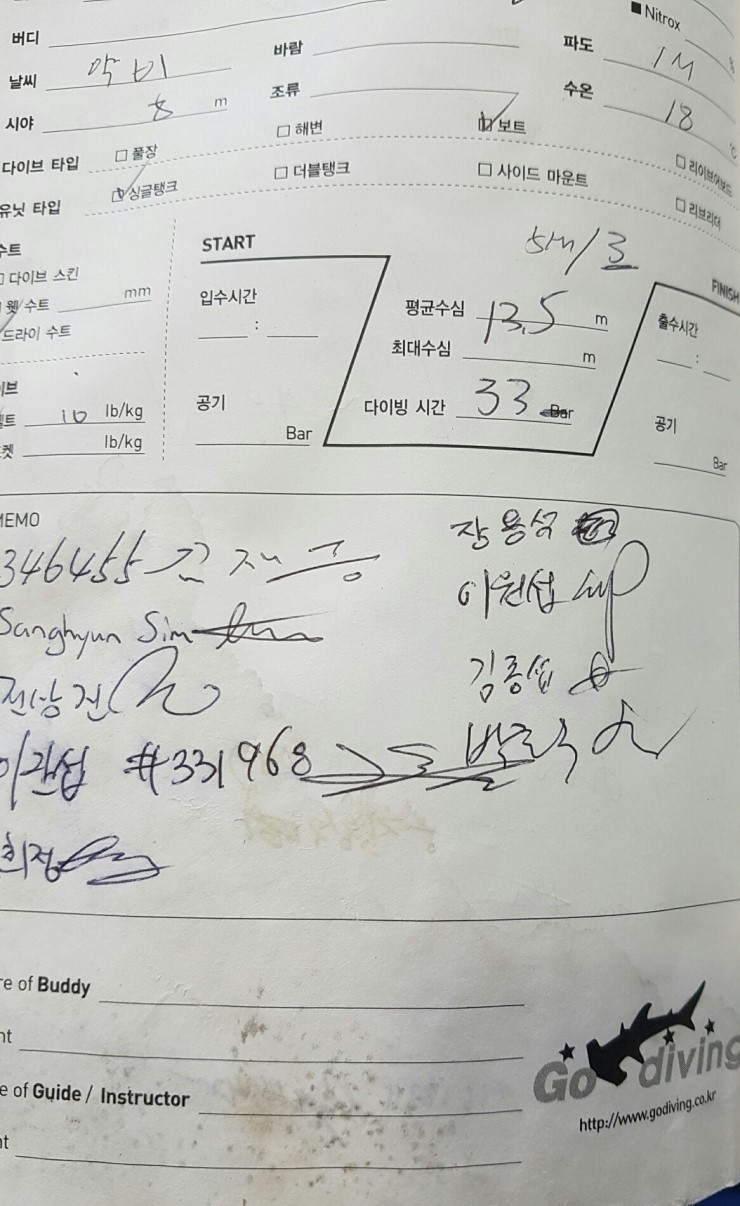 버디
■ Nitrox %
날씨 약 비 바람 파도 1M
시야 8 m 조류 수온 18 °C
다이브 타입 □ 풀장 □ 해변 □ 보트 □ 리이브어보드
유닛 타입 □ 싱글탱크 □ 더블탱크 □ 사이드 마운트 □ 리브리더
수트
다이브 스킨
웻 수트 mm
드라이 수트
이브
벨트 10 lb/kg
켓 lb/kg
START
입수시간 :
공기 Bar
5M/3
평균수심 13.5 m
최대수심 m
다이빙 시간 33 Bar
FINISH
출수시간 :
공기 Bar
MEMO
346455
장용석
Sanghyun Sim
이원섭
전상건
김종섭
이관섭 #331968
희정
re of Buddy
nt
e of Guide / Instructor
nt
Go diving
http://www.godiving.co.kr